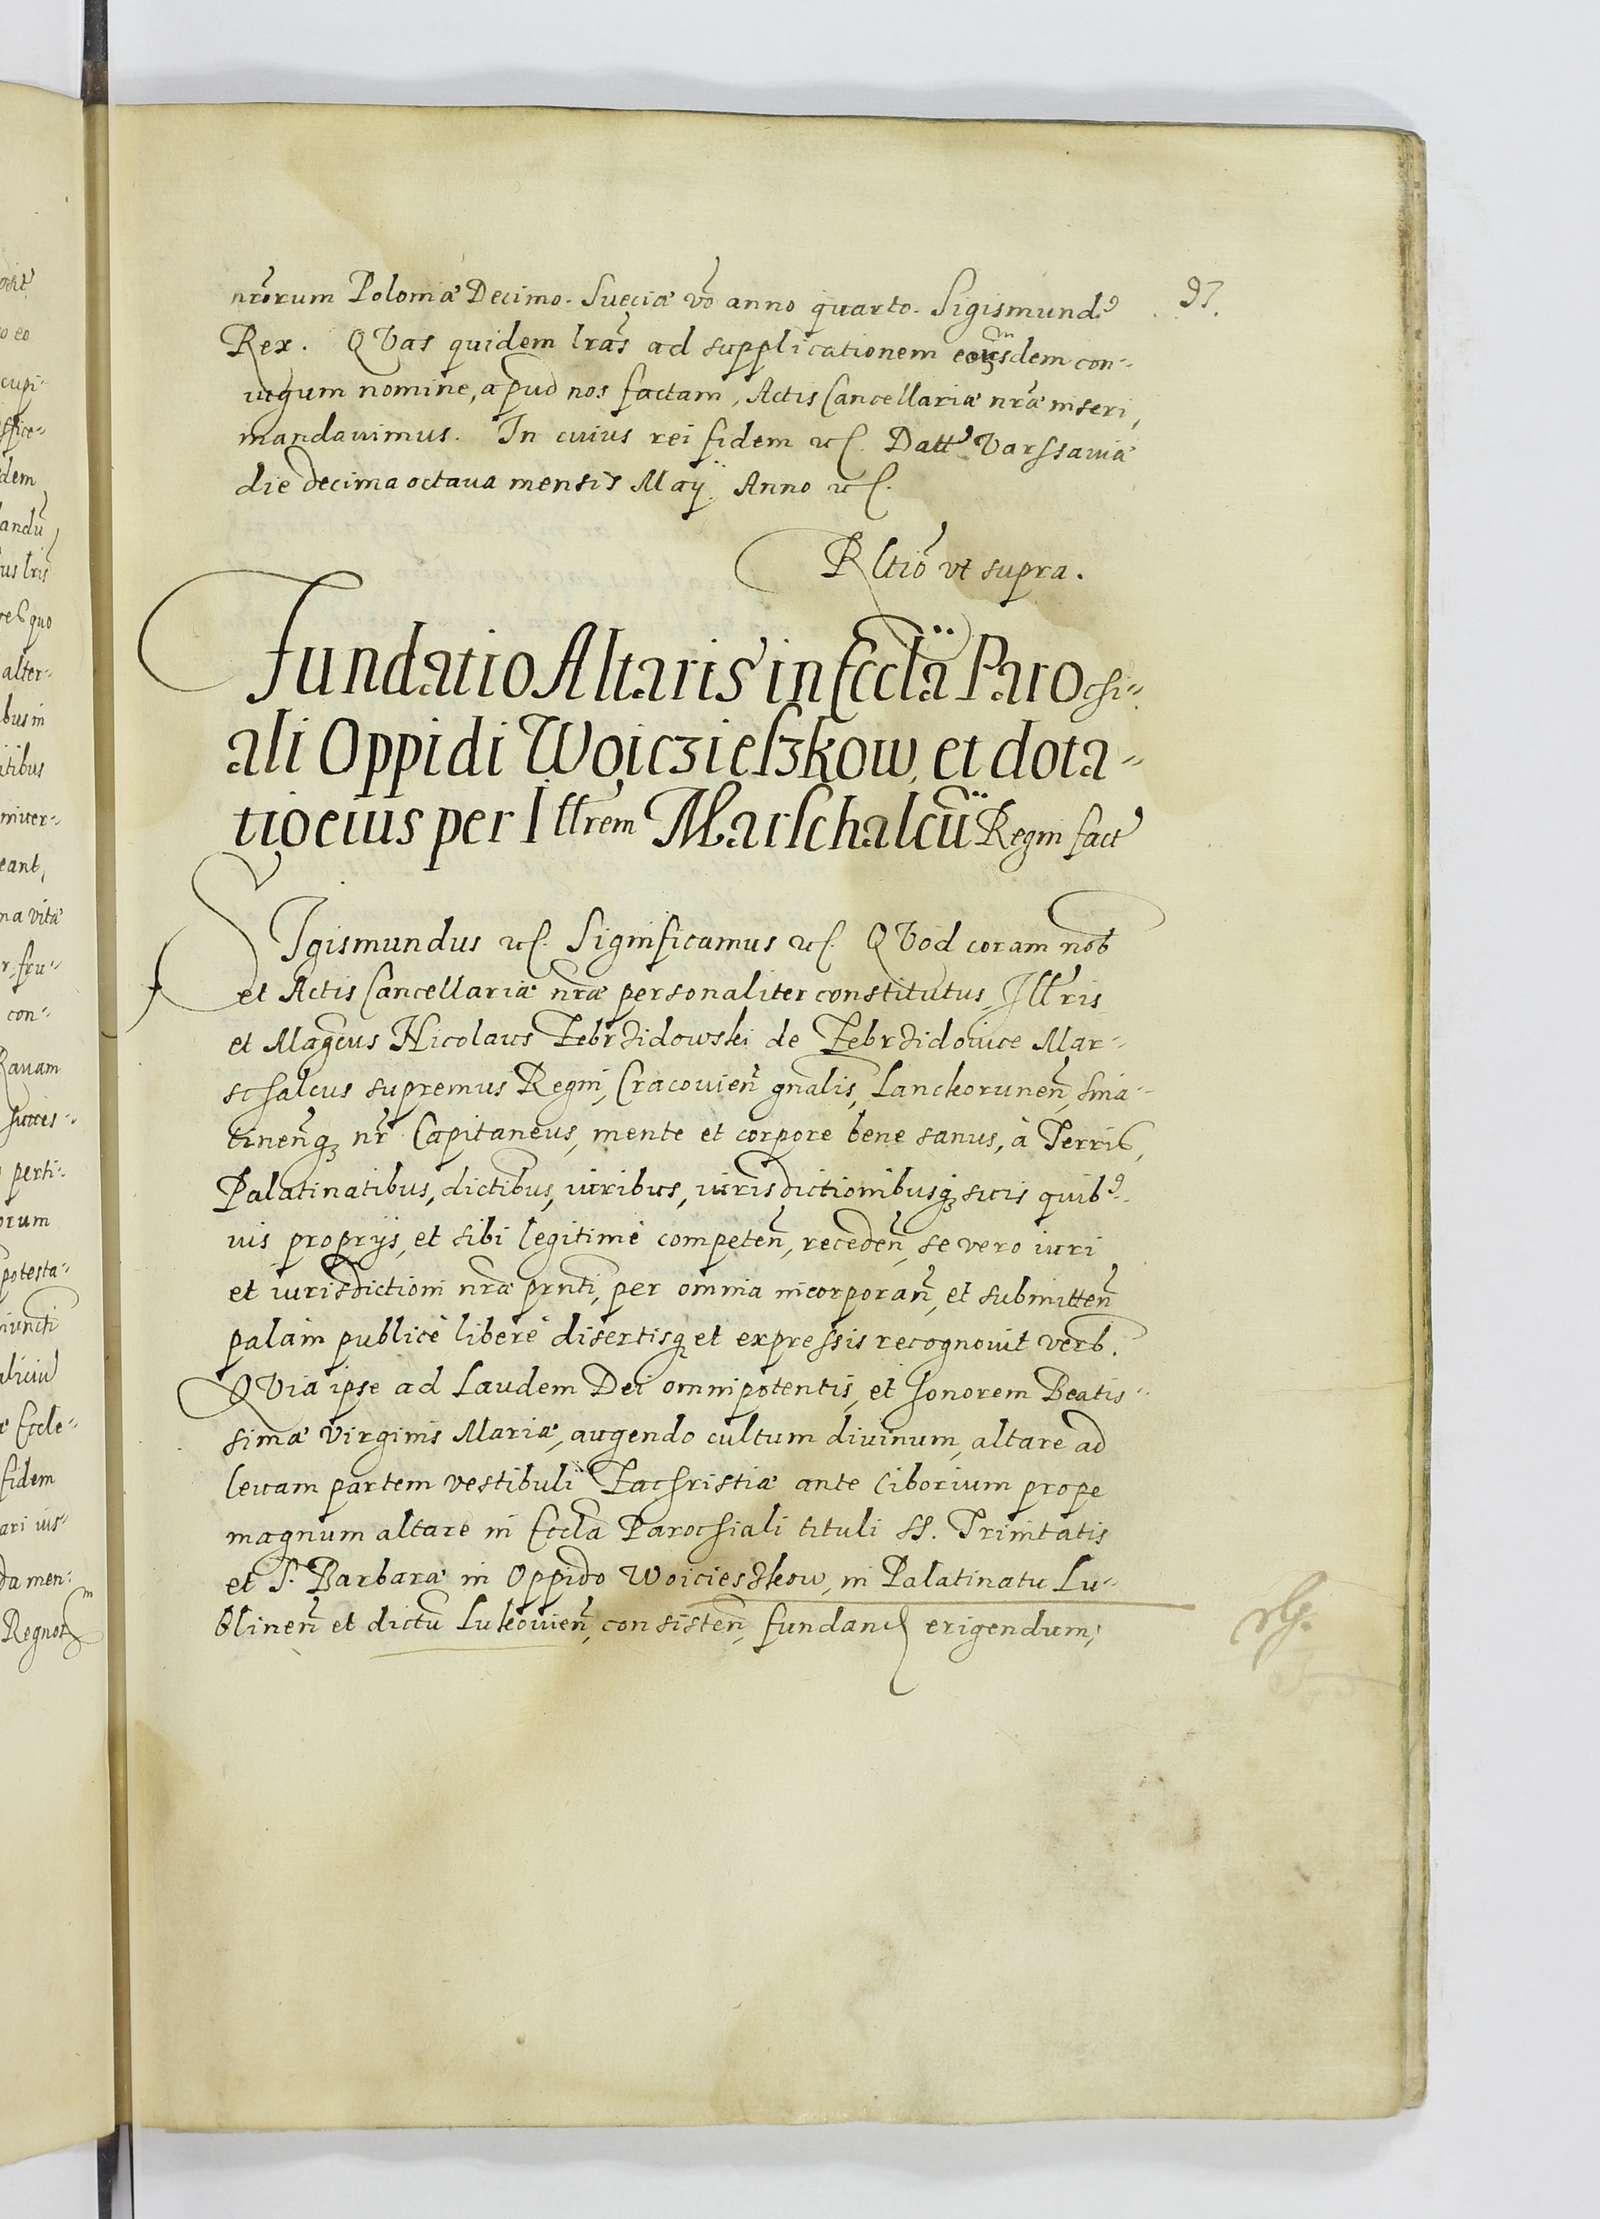 97.
nr̃orum Poloniæ Decimo. Sueciæ ṽo anno quarto. Sigismundꝰ
Rex. QVas quidem lr̃as ad supplicationem eorũsdem con-
iugum nomine, apud nos factam, Actis Cancellariæ nr̃æ inseri,
mandauimus. In cuius rei fidem etc. Datt Varssauiæ
die decima octaua mensis Maÿ. Anno etc.
Rltio vt supra.
Fundatio Altaris in Eccla Parochi-
ali Oppidi Woiczieszkow, et dota-
tio eius per Illrem Marschalcũ Regni fact
SIgismundus etc. Significamus etc. QVod coram nob
et Actis Cancellariæ nr̃æ personaliter constitutus, Illris
et Magcus Nicolaus Zebrzidowski de Zebrzidowice Mar-
schalcus supremus Regni, Cracouien̄ gnalis, Lanckorunen̄, Snia-
tinen̄q nr̃ Capitaneus, mente et corpore bene sanus, à Terris,
Palatinatibus, dictibus, iuribus, iurisdictionibusq suis quibꝰ-
uis proprijs, et sibi legitimè competen̄, receden̄, se vero iuri
et iurisdictioni nr̃æ prnti, per omnia incorporan̄, et submitten̄
palàm publicè liberè disertisq et expressis recognouit verb.
QVia ipse ad Laudem Dei omnipotentis, et honorem Beatis-
simæ Virginis Mariæ, augendo cultum diuinum, altare ad
leuam partem vestibuli Zachristiæ ante Ciborium prope
magnum altare in Eccla Parochiali tituli SS. Trinitatis
et S. Barbaræ in Oppido Woicieszkow, in Palatinatu Lu-
blinen̄ et dictu Lukouien̄, consisten̄, fundand erigendum,